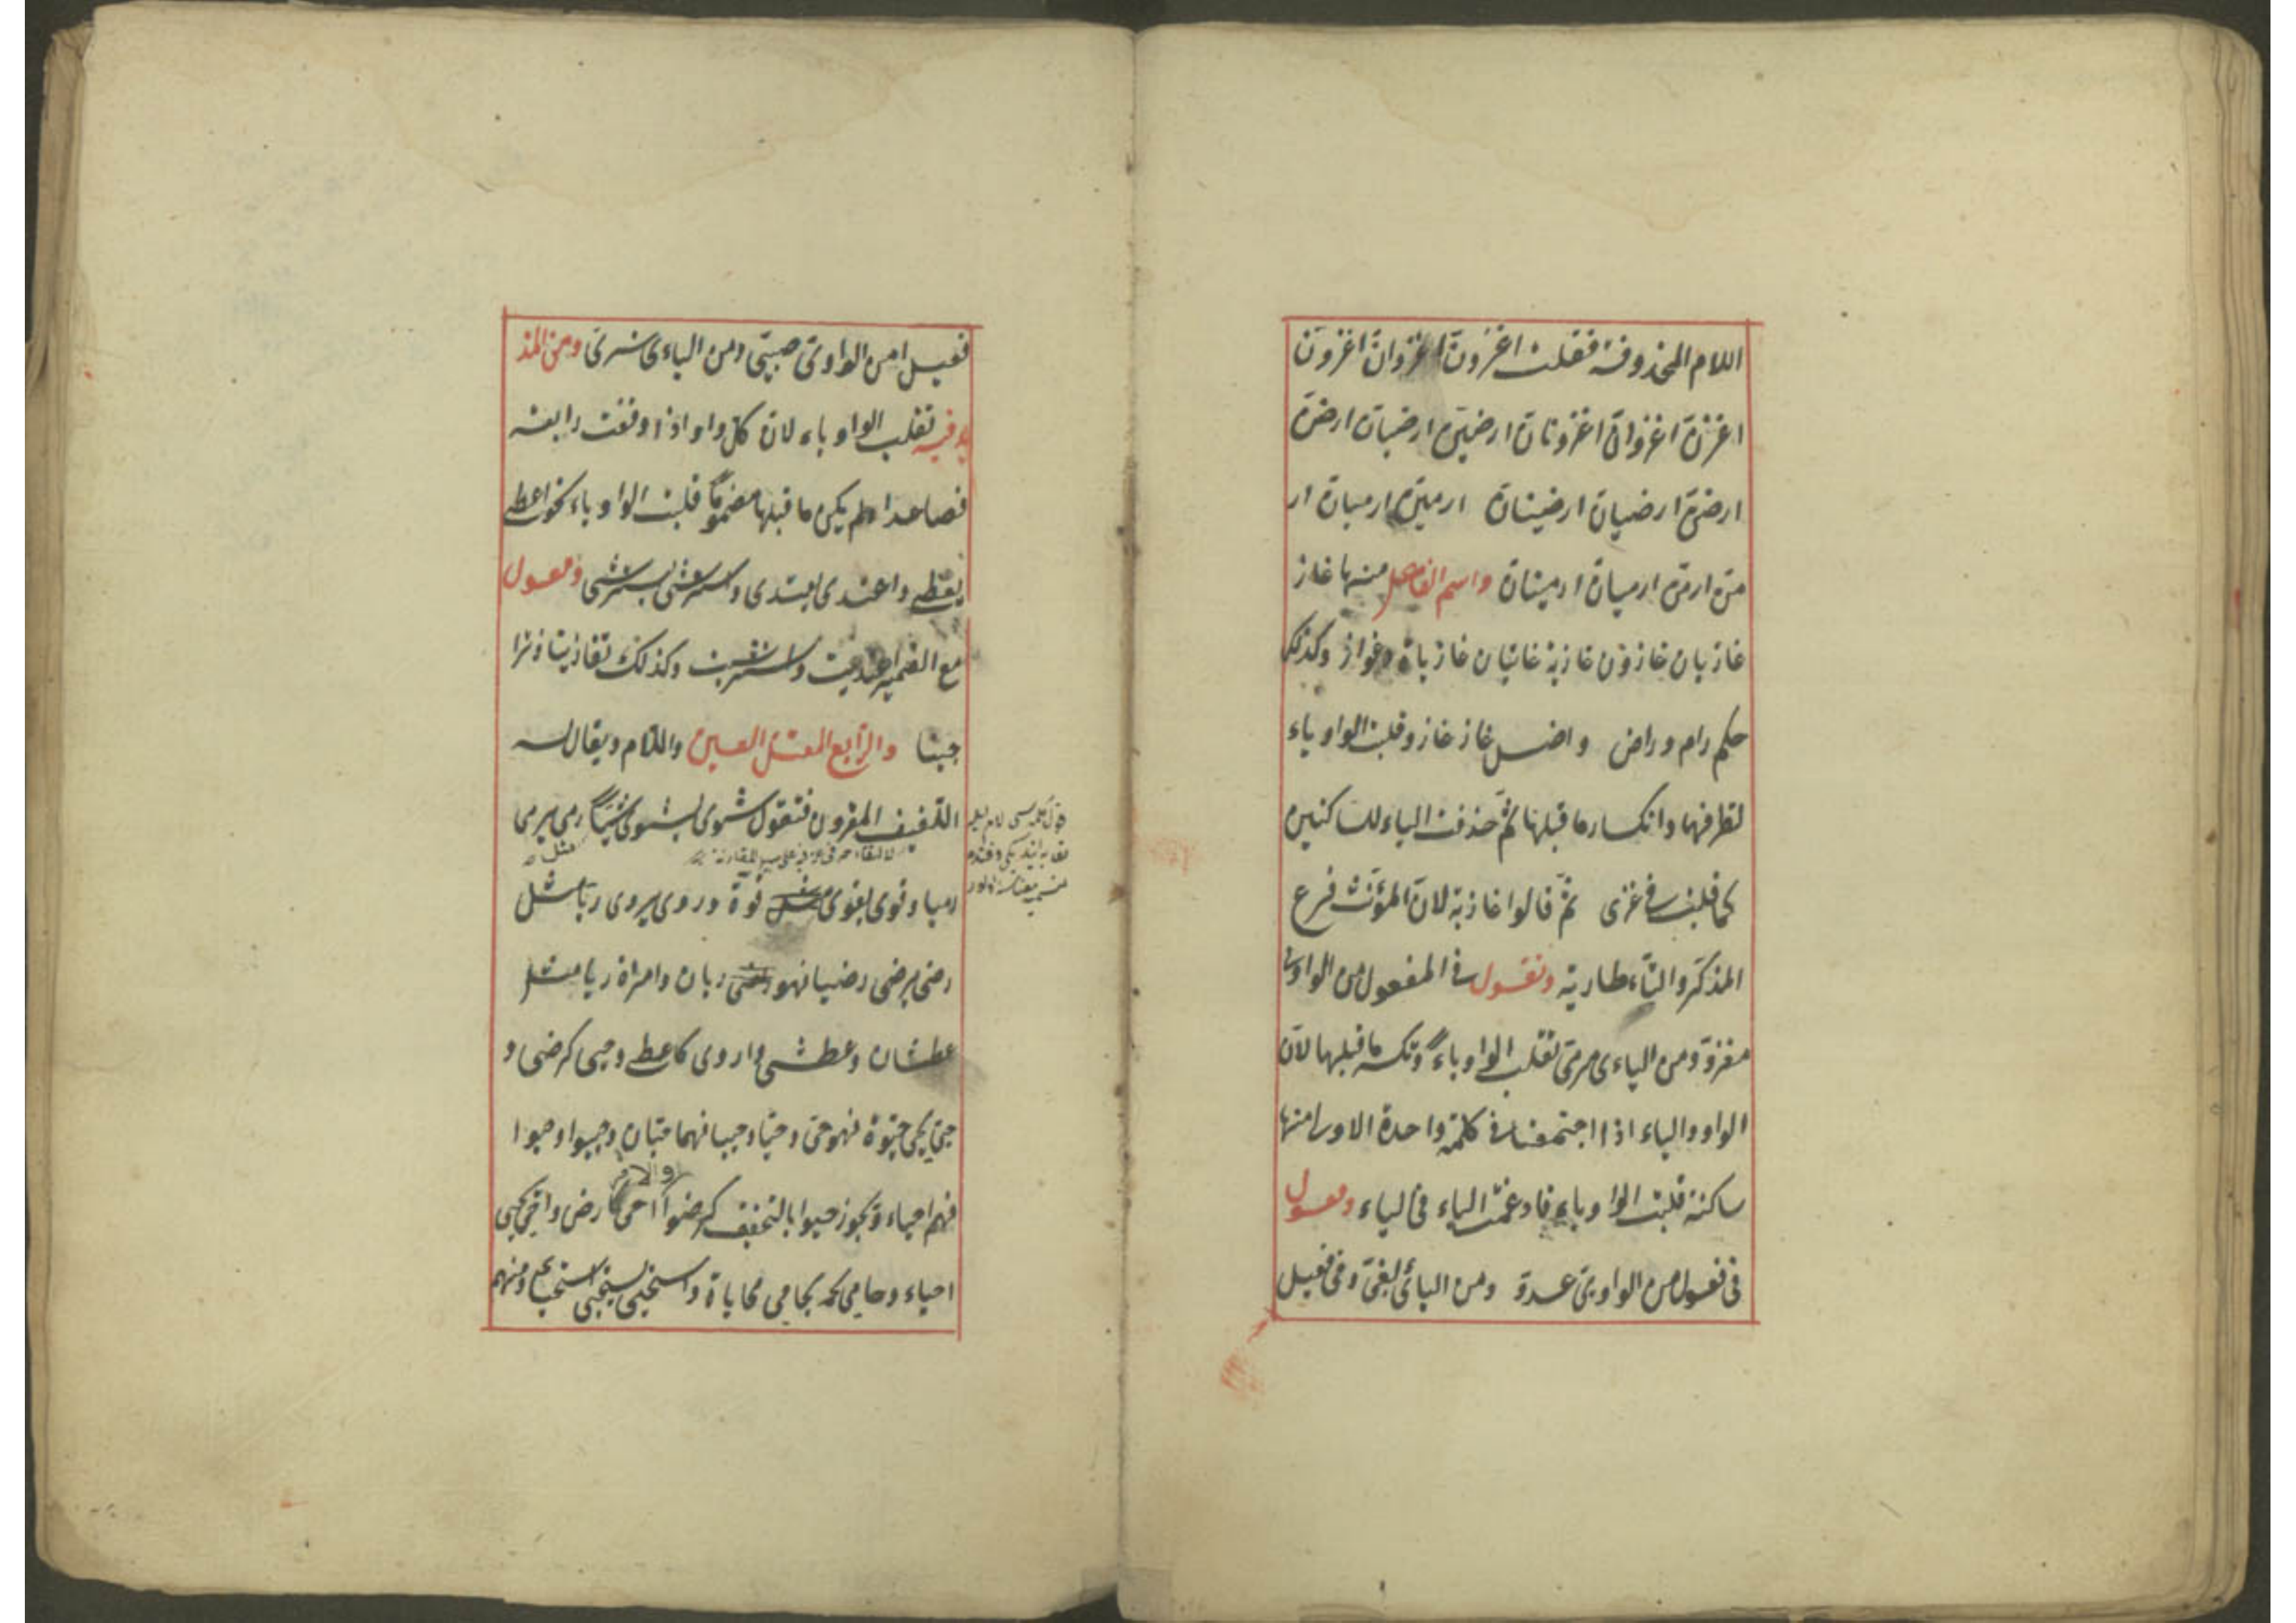 اللام المحذوفة فقلت اغزونّ اغزوانّ اغزونّ
اغزنّ اغزوانّ اغزونانّ ارضينّ ارضيانّ ارضونّ
ارضنّ ارضيانّ ارضينانّ ارمينّ ارميانّ ار
منّ ارمنّ ارميانّ ارمينانّ واسم الفاعل منها غاز
غازيان غازون غازية غازيتان غازيات وغواز وكذلك
حكم رام وراض واصل غاز غازو قلبت الواو ياء
لتطرفها وانكسار ما قبلها ثمّ حذفت الياء للساكنين
كما قلبت في غزى ثمّ قالوا غازية لانّ المؤنّث فرع
المذكّر والتّاء طارية وتقول في المفعول من الواوي
مغزوّ ومن الياءى مرمىّ تقلب الواو ياءً وتكسر ما قبلها لانّ
الواو والياء اذا اجتمعتا في كلمة واحدة الاولى منها
ساكنة قلبت الواو ياء فادغمت الياء في الياء وتقول
في فعول من الواويّ عدوّ ومن اليائىّ بغىّ وفي فعيل
فعيل من الواوىّ صبىّ ومن الياءى شرىّ ومن المذ
يد فيه تقلب الواو ياء لانّ كلّ واو اذا وقعت رابعة
فصاعدا ولم يكن ما قبلها مضموماً قلبت الواو ياء نحو اعطى
يعطى واعتدى يعتدى واسترشى يسترشى وتقول
مع الضمير اعتديت واسترشيت وكذلك تغازينا وترا
جينا والرّابع المعتلّ العين واللّام ويقال له
اللّفيف المقرون فتقول شوى يشوى شيّاً رمى يرمى
رميا وقوى يقوى قوة وروى يروى ريا مثل
رضى يرضى رضيا فهو ريان وامراة ريا مثل
عطشان وعطشى واروى كاعطى وحيى كرضى و
حىّ يحيى حيوة فهو حىّ وحيّا وحييا فهما حيّان وحييوا وحيوا
فهم احياء ويجوز حيوا بالتخفيف كرضوا والامر احى كارض واحيى يحيى
احياء وحايى يحايى محاياة واستحيى يستحيى استحياء ومنهم